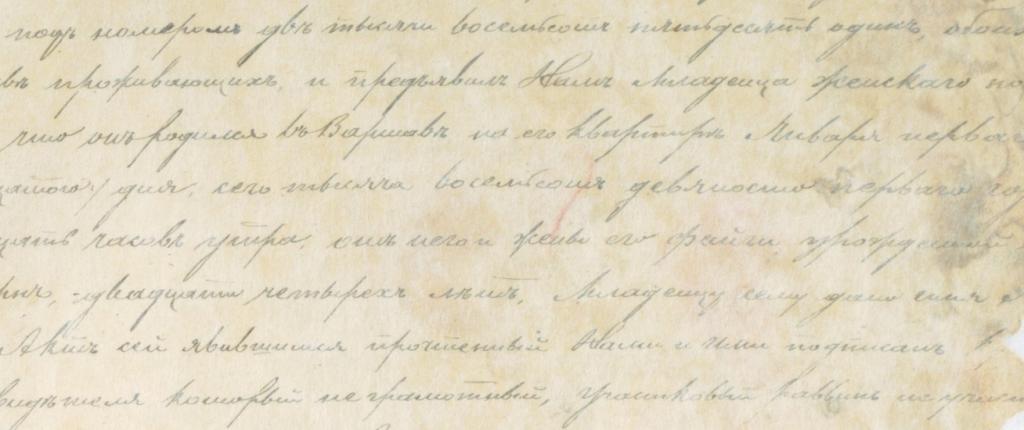 подъ номеромъ двѣ тысячи восемьсотъ пятьдесятъ одинъ,
въ проживающихъ, и предъявилъ Намъ младенца женскаго
что онъ родился въ Варшавѣ на его квартирѣ Января перваго
дня, сего тысяча восемьсотъ девяносто перваго
часовъ утра, отъ него и жены его Файги урожденной
двадцати четырехъ лѣтъ, Младенцу сему дано имя
Актъ сей явившимся прочтенный Нами и ими подписанъ
который неграмотный, участковый раввинъ не